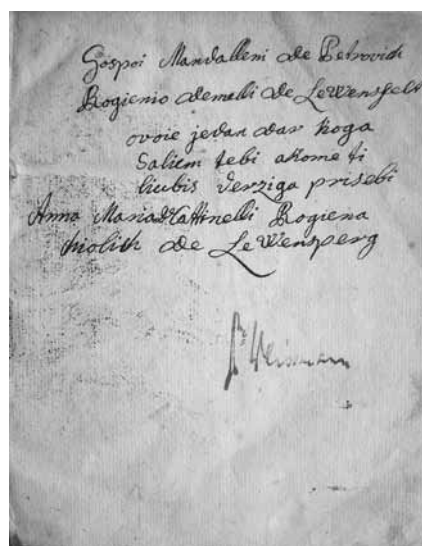 Gospoi Mandalleni de Petrovich
Rogienio demelli de LeWensfelt
ovoie jedan dar koga
Saliem tebi akome ti
liubis derziga prisebi
Anna Maria Rogiena
de LeWensperg